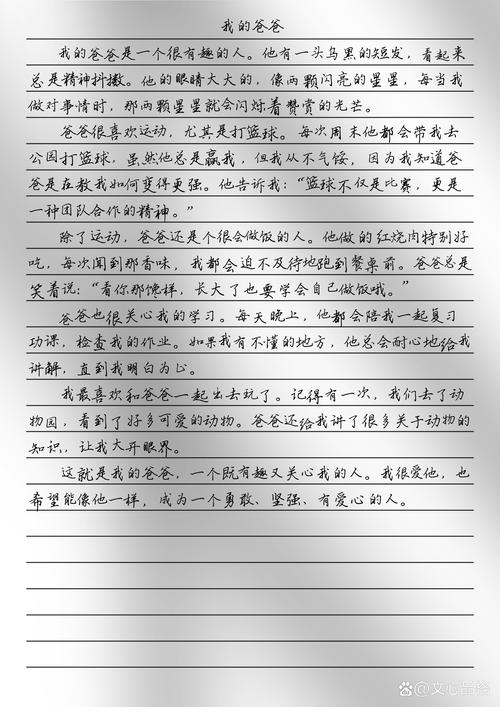 我的爸爸
我的爸爸是一个很有趣的人。他有一头乌黑的短发，看起来
总是精神抖擞。他的眼睛大大的，像两颗闪亮的星星，每当我
做对事情时，那两颗星星就会闪烁着赞赏的光芒。
爸爸很喜欢运动，尤其是打篮球。每次周末他都会带我去
公园打篮球，虽然他总是赢我，但我从不气馁，因为我知道爸
爸是在教我如何变得更强。他告诉我：“篮球不仅是比赛，更是
一种团队合作的精神。”
除了运动，爸爸还是个很会做饭的人。他做的红烧肉特别好
吃，每次闻到那香味，我都会迫不及待地跑到餐桌前。爸爸总是
笑着说：“看你那馋样，长大了也要学会自己做饭哦。”
爸爸也很关心我的学习。每天晚上，他都会陪我一起复习
功课，检查我的作业。如果我有不懂的地方，他总会耐心地给我
讲解，直到我明白为止。
我最喜欢和爸爸一起出去玩了。记得有一次，我们去了动
物园，看到了好多可爱的动物。爸爸还给我讲了很多关于动物的
知识，让我大开眼界。
这就是我的爸爸，一个既有趣又关心我的人。我很爱他，也
希望能像他一样，成为一个勇敢、坚强、有爱心的人。